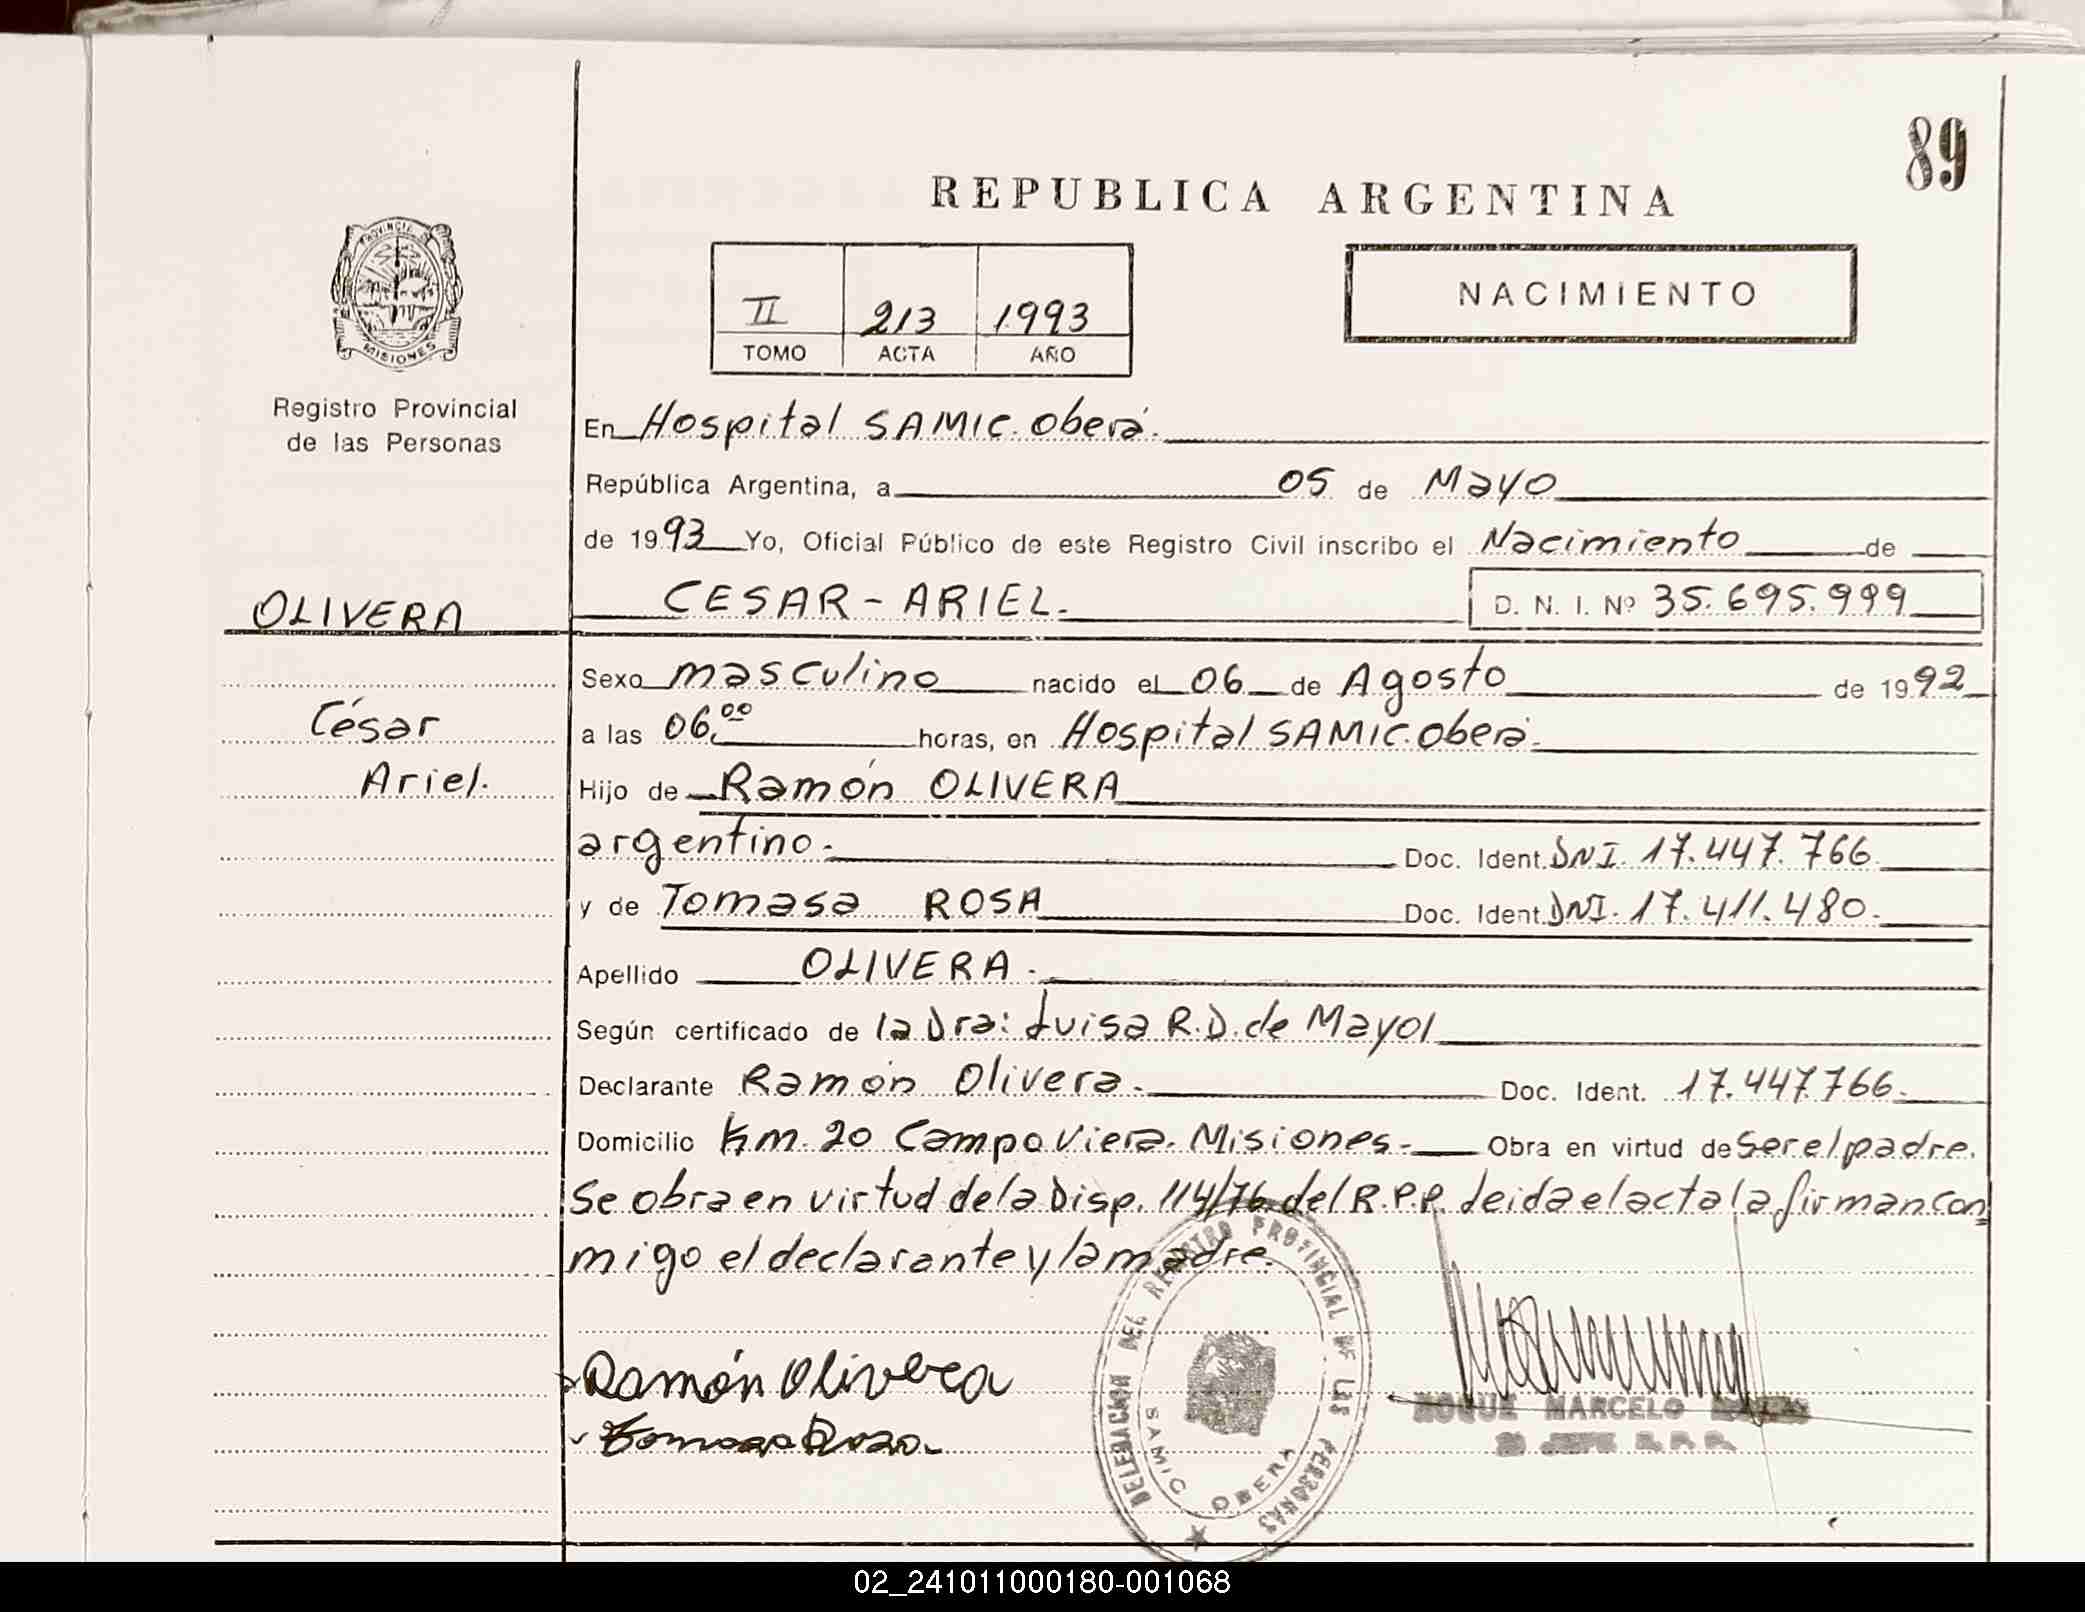 89
REPUBLICA ARGENTINA
PROVINCIA D
MISIONES
Registro Provincial
de las Personas
II 213 1993
TOMO ACTA AÑO
NACIMIENTO
En Hospital SAMIC. Oberá.
República Argentina, a 05 de Mayo
de 1993 Yo, Oficial Público de este Registro Civil inscribo el Nacimiento de
OLIVERA
CESAR-ARIEL. D. N. I. Nº 35.695.999
Sexo masculino nacido el 06 de Agosto de 1992
César
a las 06,00 horas, en Hospital SAMIC. Oberá.
Ariel.
Hijo de Ramón OLIVERA
argentino. Doc. Ident. DNI. 17.447.766
y de Tomasa ROSA Doc. Ident. DNI. 17.411.480.
Apellido OLIVERA.
Según certificado de la Dra: Luisa R.D. de Mayol
Declarante Ramón Olivera. Doc. Ident. 17.447.766.
Domicilio Km. 20 Campo Viera. Misiones. Obra en virtud de Ser el padre.
Se obra en virtud de la Disp. 114/76. del R.P.P. Leida el acta la firman con
migo el declarante y la madre.
Ramón Olivera
Tomasa Rosa.
DELEGACION DEL REGISTRO PROVINCIAL DE LAS PERSONAS
SAMIC OBERA
ROQUE MARCELO
02_241011000180-001068